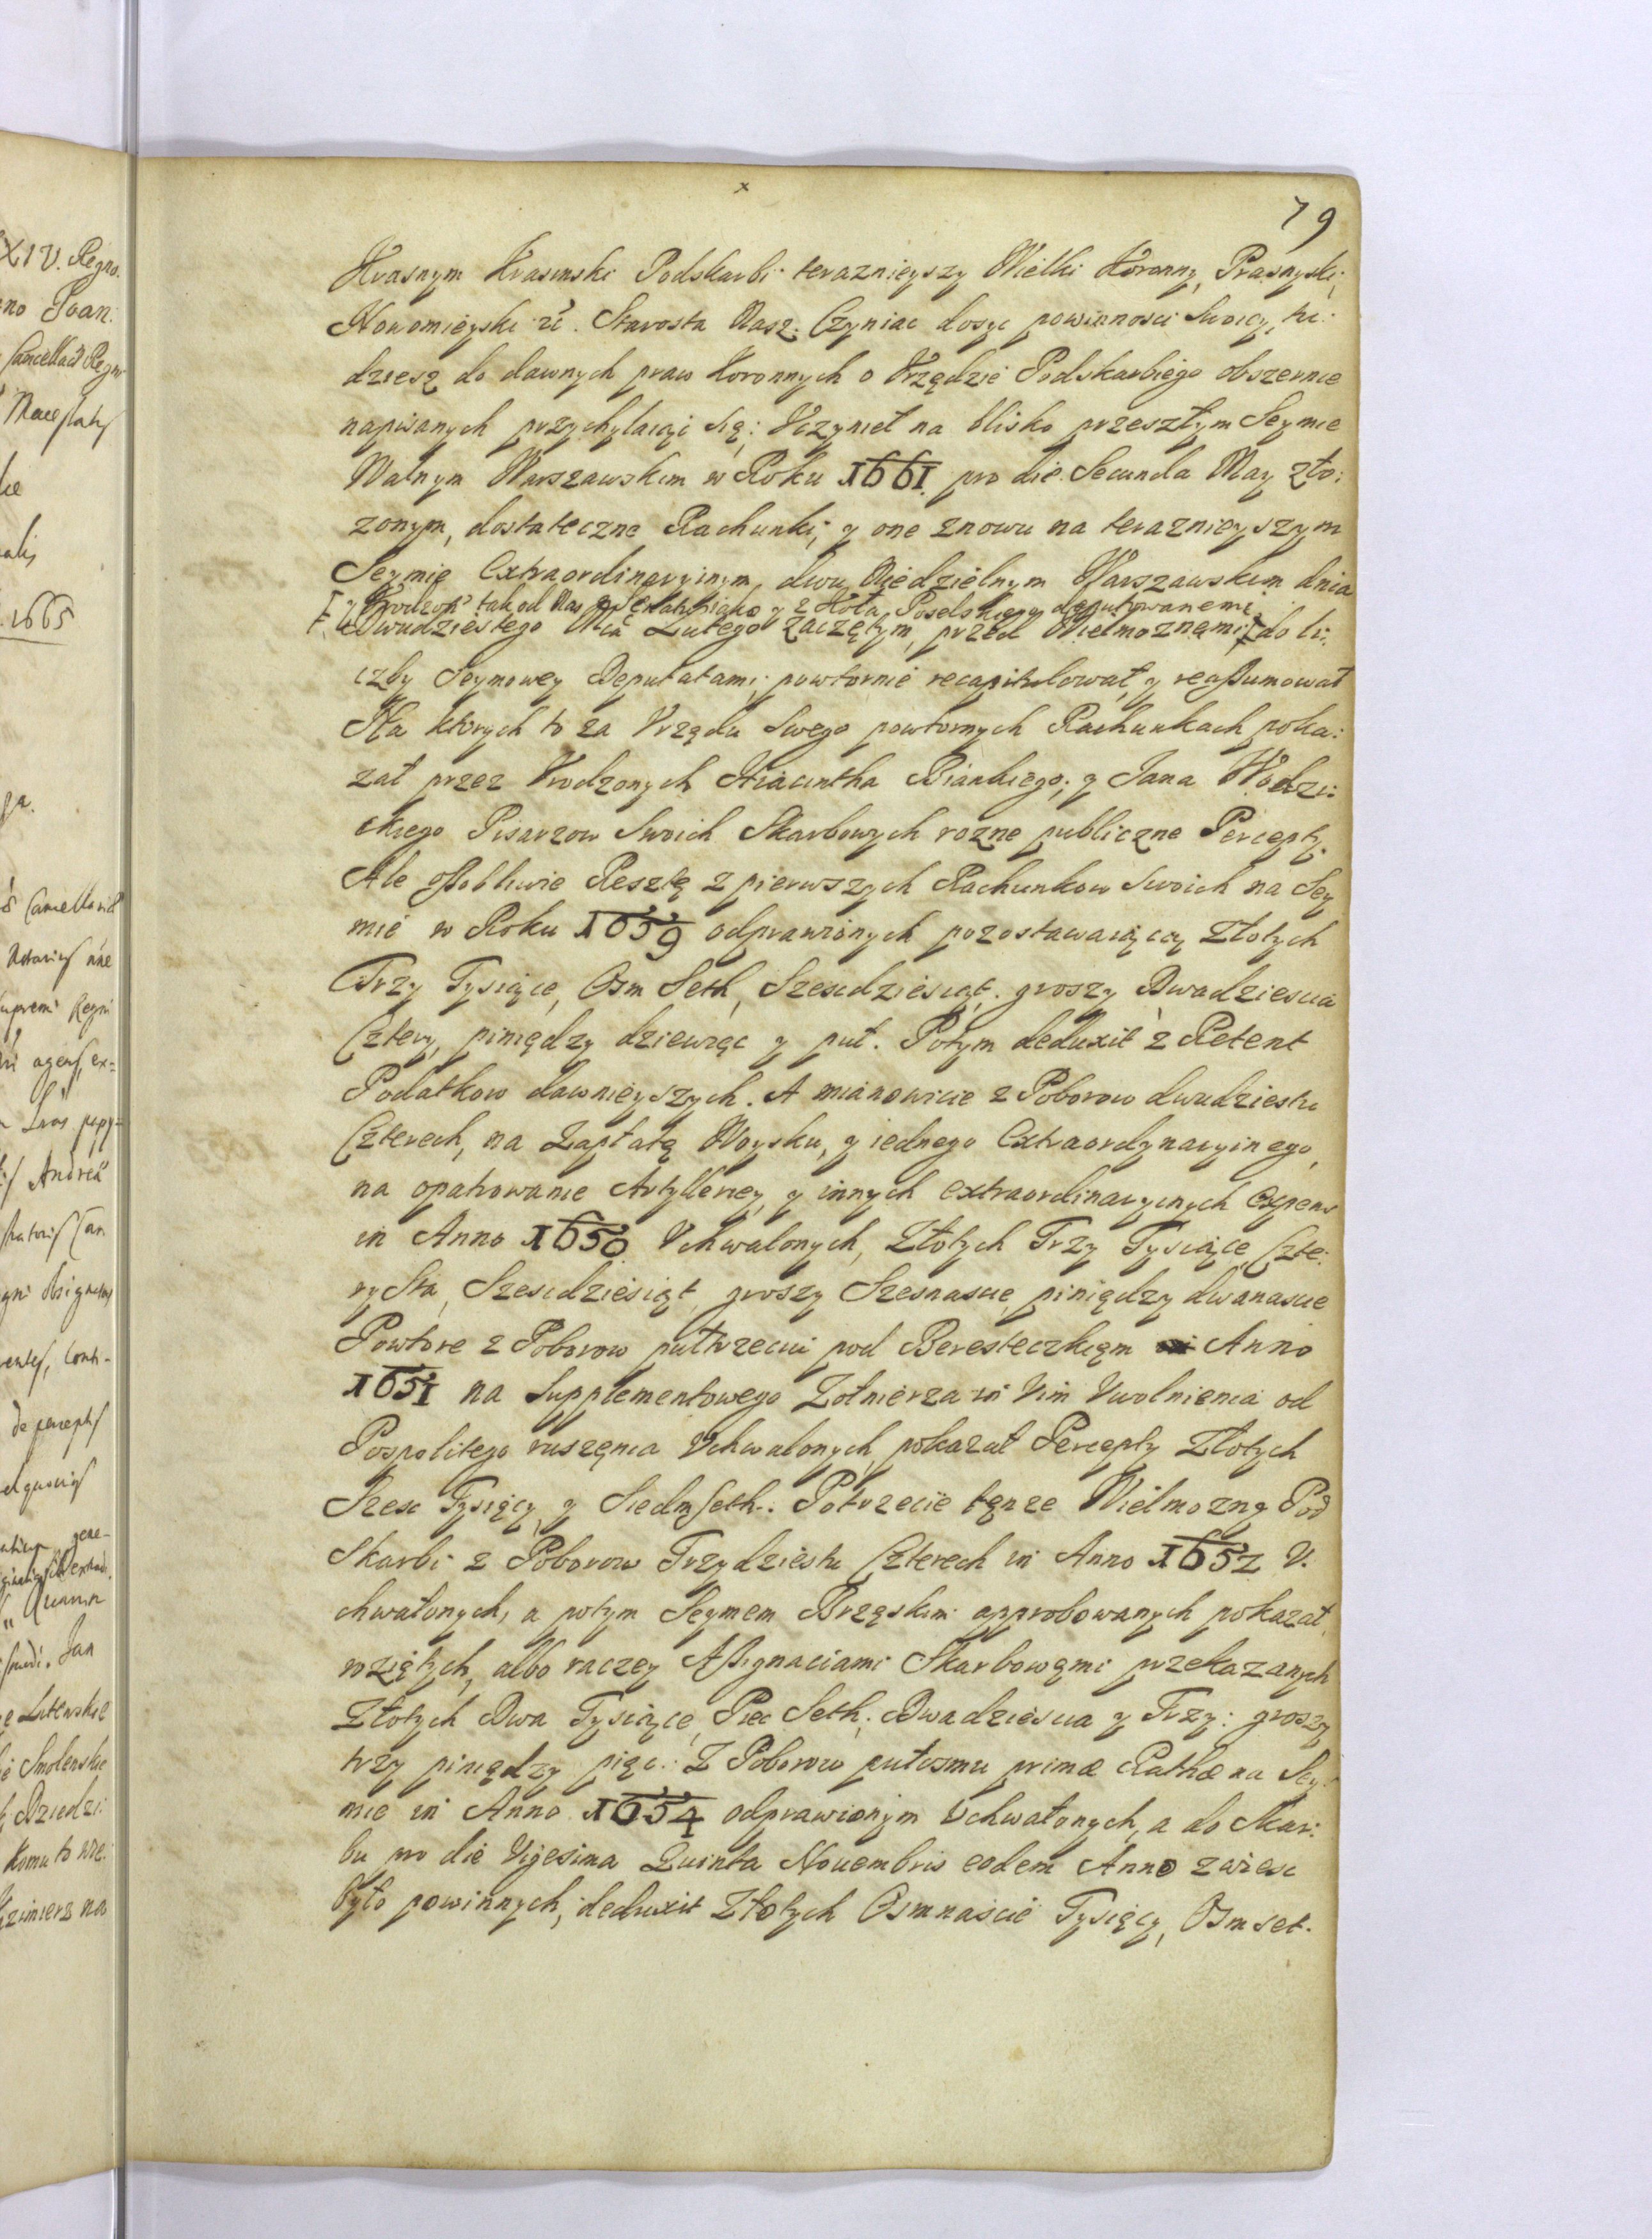 79
Krasnym Krasinski Podskarbi teraznieyszy Wielki Koronny, Prasnyski,
Nowomieyski &c. Starosta Nasz. Czyniac dosyc powinnosci Swoiey, tu:
dziesz do dawnych praw Koronnych o Vrzędzie Podskarbiego obszernie
napisanych przychylaiąc się: Vczynieł na blisko przeszłym Seymie
Walnym Warszawskim w Roku 1661. pro die Secunda May zło:
zonym, dostateczne Rachunki, y one znowu na teraznieyszym
Seymie Extraordinaryinym, dwu Niedzielnym Warszawskim dnia
y Vrodzon. tak od Nas z Senatu iako y z Koła Poselskiego deputowanemi
Dwudziestego Mca Lutego zaczętym, przed Wielmoznemi do li:
czby Seymowey Deputatami, powtornie recapitulował y reassumował
Na ktorych to za Vrzędu Swego powtornych Rachunkach poka:
zał przez Vrodzonych Hiacintha Biankiego, y Jana Wodzi:
ckiego Pisarzow Swoich Skarbowych rozne publiczne Percepty.
Ale ossobliwie Resztę z pierwszych Rachunkow Swoich na Sey
mie w Roku 1659 odprawionych pozostawaiącą Złotych
Trzy Tysiące, Osm Seth, Szescdziesiąt. groszy Dwadziescia
Cztery, piniędzy dziewięc y puł. Potym deduxit z Retent
Podatkow dawnieyszych. A mianowicie z Poborow dwudziestu
Czterech, na Zapłatę Woysku, y iednego Extraordynaryinego,
na opatrowanie Artylleriey, y innych extraordinaryinych Expens
in Anno 1650 Vchwalonych, Złotych Trzy Tysiące, Czte:
rysta, Szescdziesiąt, groszy Szesnascie, piniędzy dwanascie
Powtore z Poborow pułtrzeciu pod Beresteczkiem Anno
1651 na Supplementowego Zołnierza in Vim Vwolnienia od
Pospolitego ruszęnia Vchwalonych, pokazał Percepty Złotych
Szesc Tysięcy, y Siedm Seth. Potrzecie tęnze Wielmozny Pod
Skarbi z Poborow Trzydziestu Czterech in Anno 1652 V.
chwalonych, a potym Seymem Brzęskim approbowanych pokazał,
wziętych, albo raczey Assignaciami Skarbowęmi przekazanych
Złotych Dwa Tysiące, Piec Seth, Dwadziescia y Trzy: groszy
trzy piniędzy pięc. Z Poborow pułosmu primæ Rathæ na Sey:
mie in Anno 1654 odprawionym Vchwalonych, a do Skar:
bu pro die Vigesima Quinta Nouembris eodem Anno zniesc
było powinnych, deduxit Złotych Osmnascie Tysięcy, Osm set.